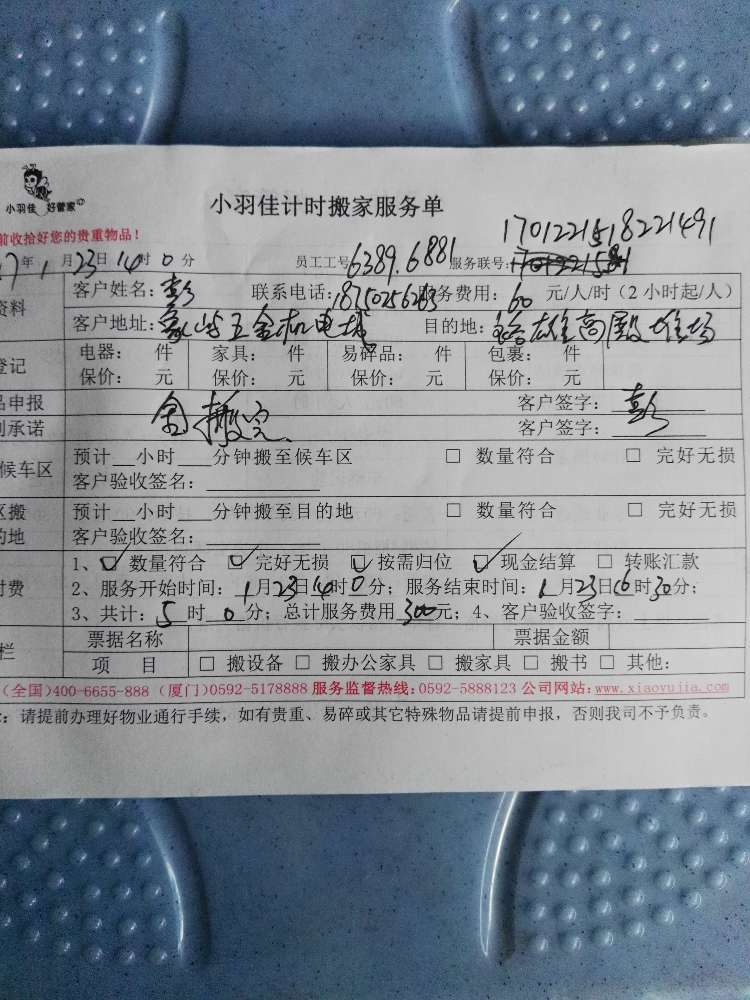 小羽佳 好管家
小羽佳计时搬家服务单
1701221518221491
前收拾好您的贵重物品!
7年1月23日14时0分 员工工号6389.6881 服务联号:
资料 客户姓名:彭 联系电话: 务费用:60元/人/时(2小时起/人)
客户地址: 五金机电城 目的地: 雄高殿堆场
登记 电器: 件 家具: 件 易碎品: 件 包裹: 件
保价: 元 保价: 元 保价: 元 保价: 元
品申报 客户签字:彭
承诺 搬完 客户签字:
候车区 预计__小时___分钟搬至候车区 □ 数量符合 □ 完好无损
客户验收签名:
区搬 预计__小时___分钟搬至目的地 □ 数量符合 □ 完好无损
的地 客户验收签名:
1、☑数量符合 ☑完好无损 ☑按需归位 ☑现金结算 □ 转账汇款
付费 2、服务开始时间:1月23日14时0分;服务结束时间:1月23日16时30分;
3、共计:5时0分;总计服务费用300元;4、客户验收签字:
栏 票据名称 票据金额
项 目 □ 搬设备 □ 搬办公家具 □ 搬家具 □ 搬书 □ 其他:
(全国)400-6655-888 (厦门)0592-5178888 服务监督热线:0592-5888123 公司网站:www.xiaoyujia.com
:请提前办理好物业通行手续,如有贵重、易碎或其它特殊物品请提前申报,否则我司不予负责。